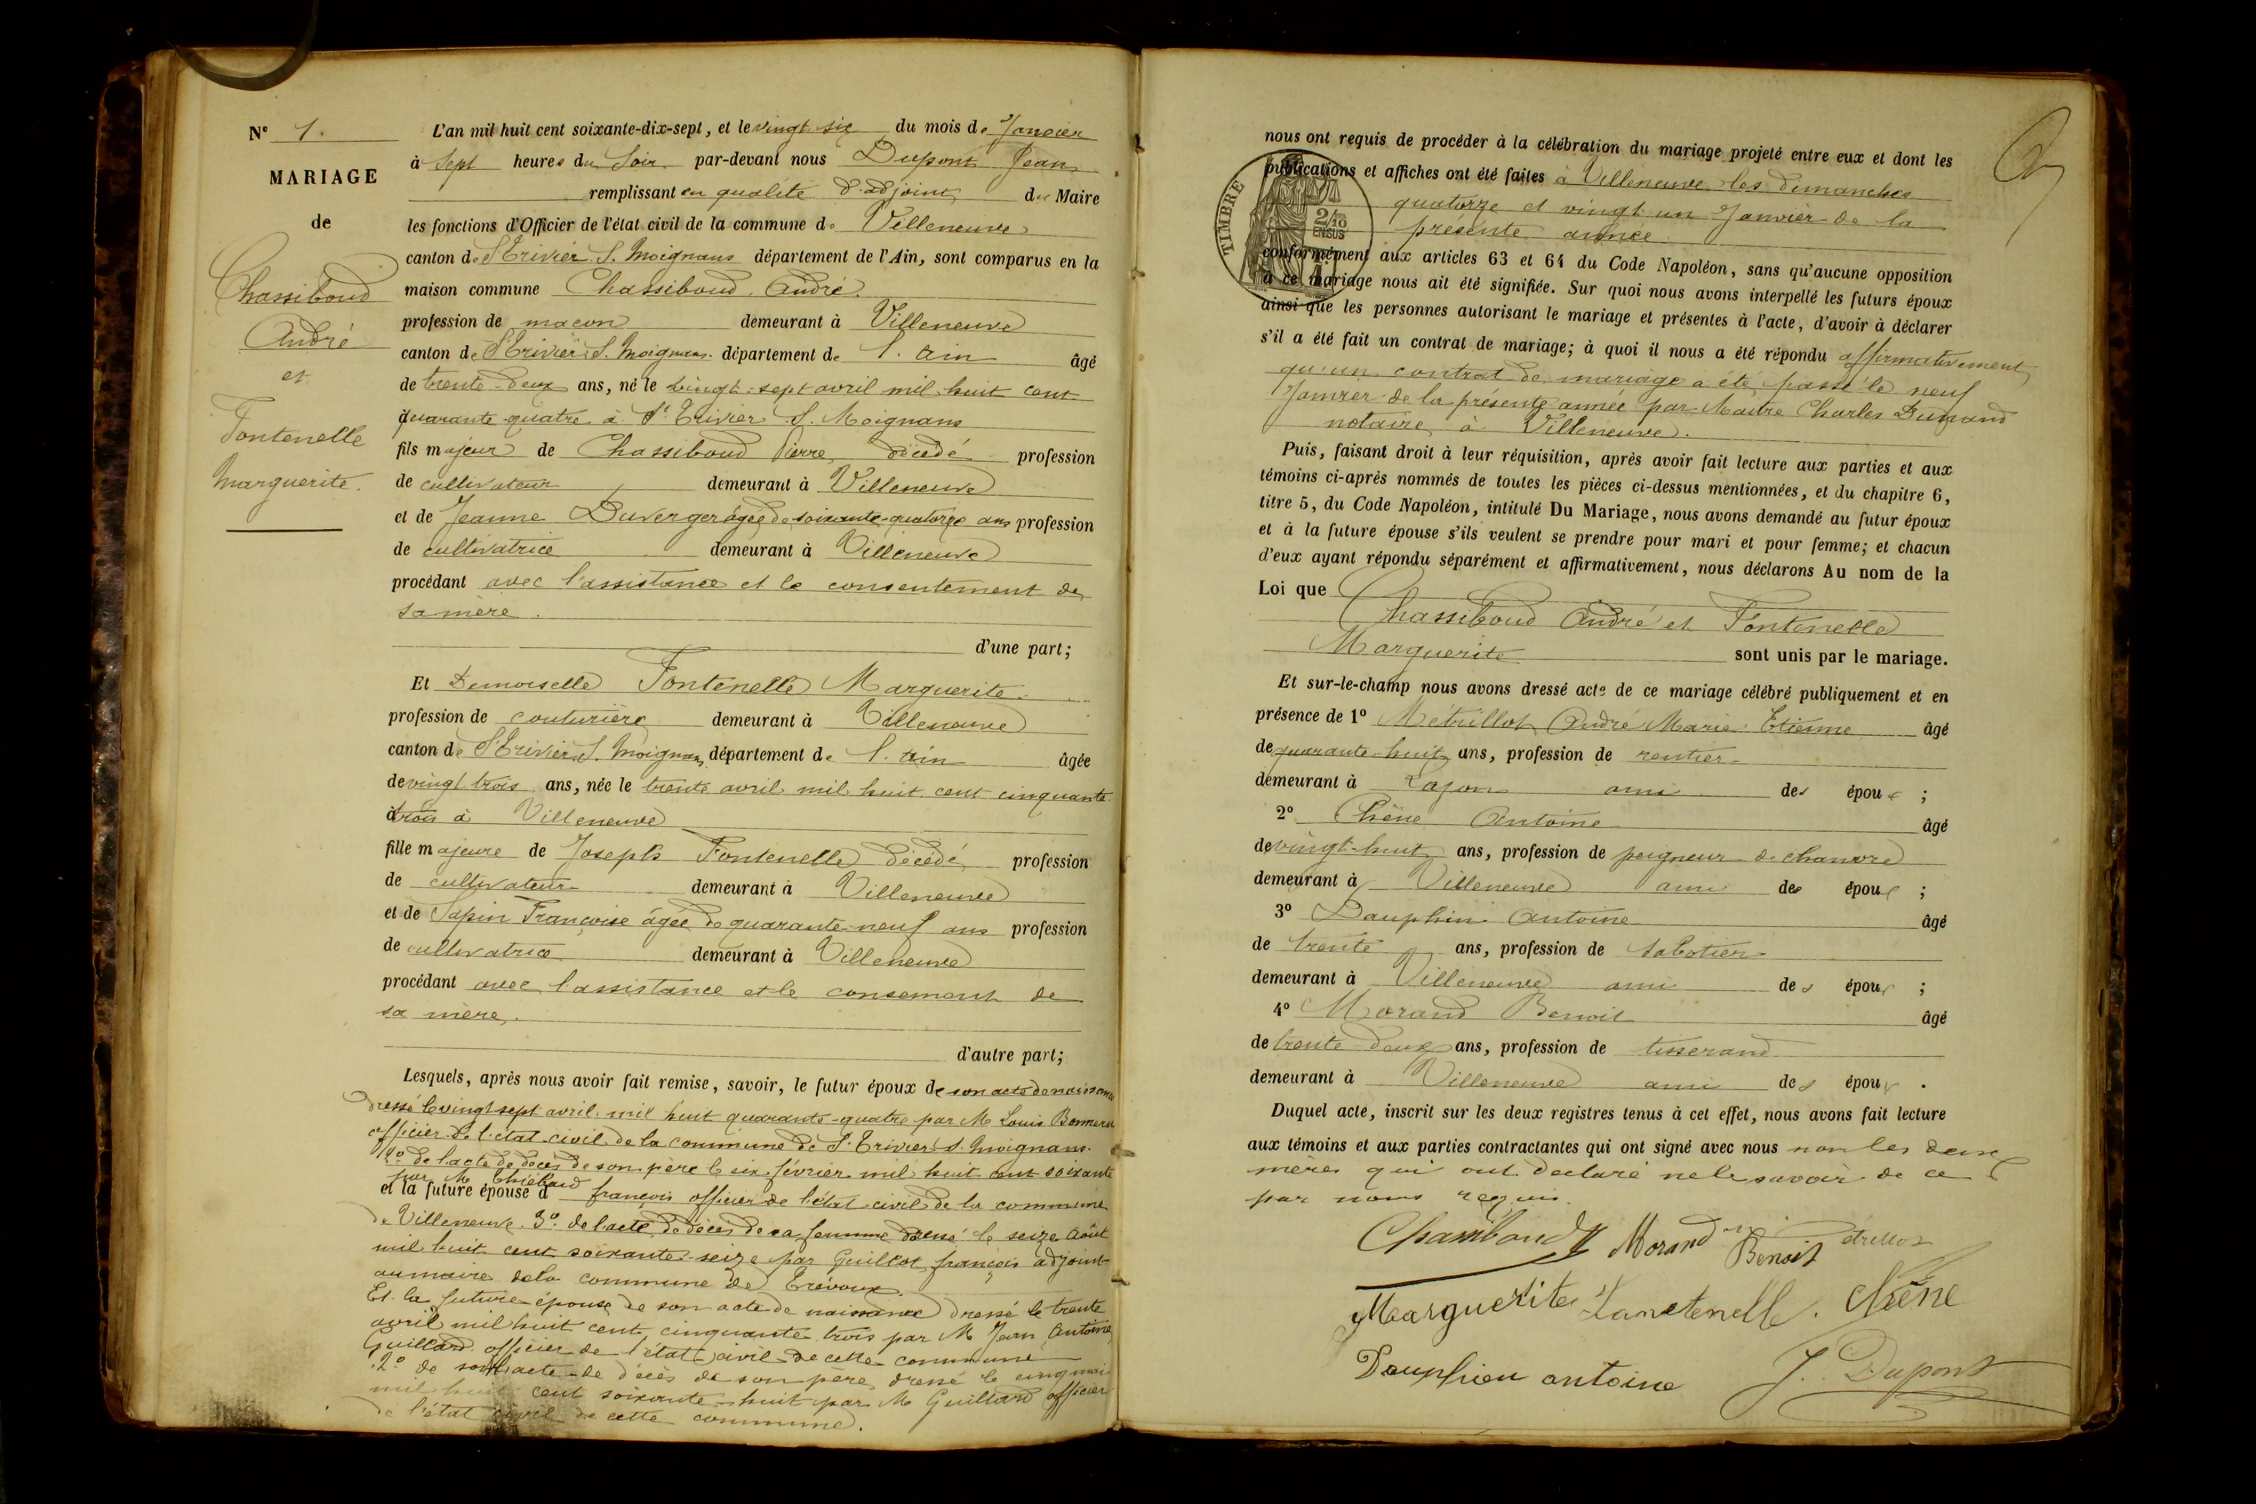 N° 1.
MARIAGE
de
Chassiboud
André
et
Fontenelle
Marguerite.
L'an mil huit cent soixante-dix-sept, et le vingt six du mois de Janvier
à sept heures du soir par-devant nous Dupont Jean
remplissant en qualité d'adjoint du Maire
les fonctions d'Officier de l'état civil de la commune de Villeneuve
canton de St Trivier S. Moignans département de l'Ain, sont comparus en la
maison commune Chassiboud André.
profession de maçon demeurant à Villeneuve
canton de St Trivier S. Moignans département de l'Ain âgé
de trente-deux ans, né le vingt-sept avril mil huit cent
quarante-quatre à St Trivier S. Moignans
fils majeur de Chassiboud Pierre décédé profession
de cultivateur demeurant à Villeneuve
et de Jeanne Duverger âgée de soixante-quatorze ans profession
de cultivatrice demeurant à Villeneuve
procédant avec l'assistance et le consentement de
sa mère.
d'une part;
Et Demoiselle Fontenelle Marguerite
profession de couturière demeurant à Villeneuve
canton de St Trivier S. Moignans département de l'Ain âgée
de vingt trois ans, née le trente avril mil huit cent cinquante
trois à Villeneuve
fille majeure de Joseph Fontenelle décédé profession
de cultivateur demeurant à Villeneuve
et de Sapin Françoise âgée de quarante-neuf ans profession
de cultivatrice demeurant à Villeneuve
procédant avec l'assistance et le consement de
sa mère.
d'autre part;
Lesquels, après nous avoir fait remise, savoir, le futur époux de son acte de naissance
dressé le vingt sept avril mil huit quarante-quatre par M Louis
officier de l'état civil de la commune de St Trivier S. Moignans.
2° de l'acte de décès de son père le six février mil huit cent soixante
par M Thiébaud
et la future épouse d françois officier de l'état civil de la commune
de Villeneuve. 3° de l'acte de décès de sa femme dressé le seize Août
mil huit cent soixante-seize par Guillot françois adjoint
au maire de la commune de Trévoux.
Et la future épouse de son acte de naissance dressé le trente
avril mil huit cent cinquante trois par M Jean Antoine
Guillard officier de l'état civil de cette commune
2° de son acte de décès de son père dressé le cinq mai
mil huit cent soixante-huit par M Guillard officier
de l'état civil de cette commune.
nous ont requis de procéder à la célébration du mariage projeté entre eux et dont les
publications et affiches ont été faites à Villeneuve les dimanches
quatorze et vingt un Janvier de la
présente année
TIMBRE
2/10
EN SUS
conformément aux articles 63 et 64 du Code Napoléon, sans qu'aucune opposition
à ce mariage nous ait été signifiée. Sur quoi nous avons interpellé les futurs époux
ainsi que les personnes autorisant le mariage et présentes à l'acte, d'avoir à déclarer
s'il a été fait un contrat de mariage; à quoi il nous a été répondu affirmativement
qu'un contrat de mariage a été passé le neuf
Janvier de la présente année par Maître Charles Dumand
notaire à Villeneuve.
Puis, faisant droit à leur réquisition, après avoir fait lecture aux parties et aux
témoins ci-après nommés de toutes les pièces ci-dessus mentionnées, et du chapitre 6,
titre 5, du Code Napoléon, intitulé Du Mariage, nous avons demandé au futur époux
et à la future épouse s'ils veulent se prendre pour mari et pour femme; et chacun
d'eux ayant répondu séparément et affirmativement, nous déclarons Au nom de la
Loi que
Chassiboud André et Fontenelle
Marguerite sont unis par le mariage.
Et sur-le-champ nous avons dressé acte de ce mariage célébré publiquement et en
présence de 1° Métrillot André Marie Etienne âgé
de quarante-huit ans, profession de rentier
demeurant à ami des époux ;
2° Chêne Antoine âgé
de vingt-huit ans, profession de peigneur de chanvre
demeurant à Villeneuve ami des époux ;
3° Dauphin Antoine âgé
de trente ans, profession de sabotier
demeurant à Villeneuve ami des époux ;
4° Morand Benoit âgé
de trente deux ans, profession de tisserand
demeurant à Villeneuve ami des époux .
Duquel acte, inscrit sur les deux registres tenus à cet effet, nous avons fait lecture
aux témoins et aux parties contractantes qui ont signé avec nous non les deux
mères qui ont déclaré ne le savoir de ce
par nous requis.
Chassiboud Morand Benoit étrillot
Marguerite Chêne
Dauphien antoine J. Dupont